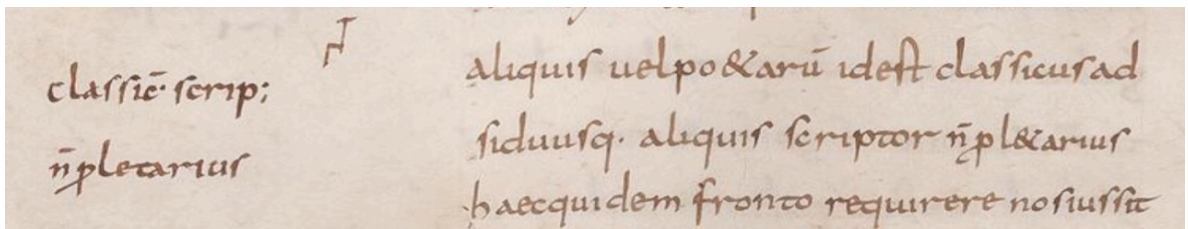 classic̄· scrip;
n̄ ꝓletarius
aliquis uelpo&arū idest classicus ad
siduusq· aliquis scriptor n̄ ꝓl&arius
haecquidem fronto requirere nosiussit